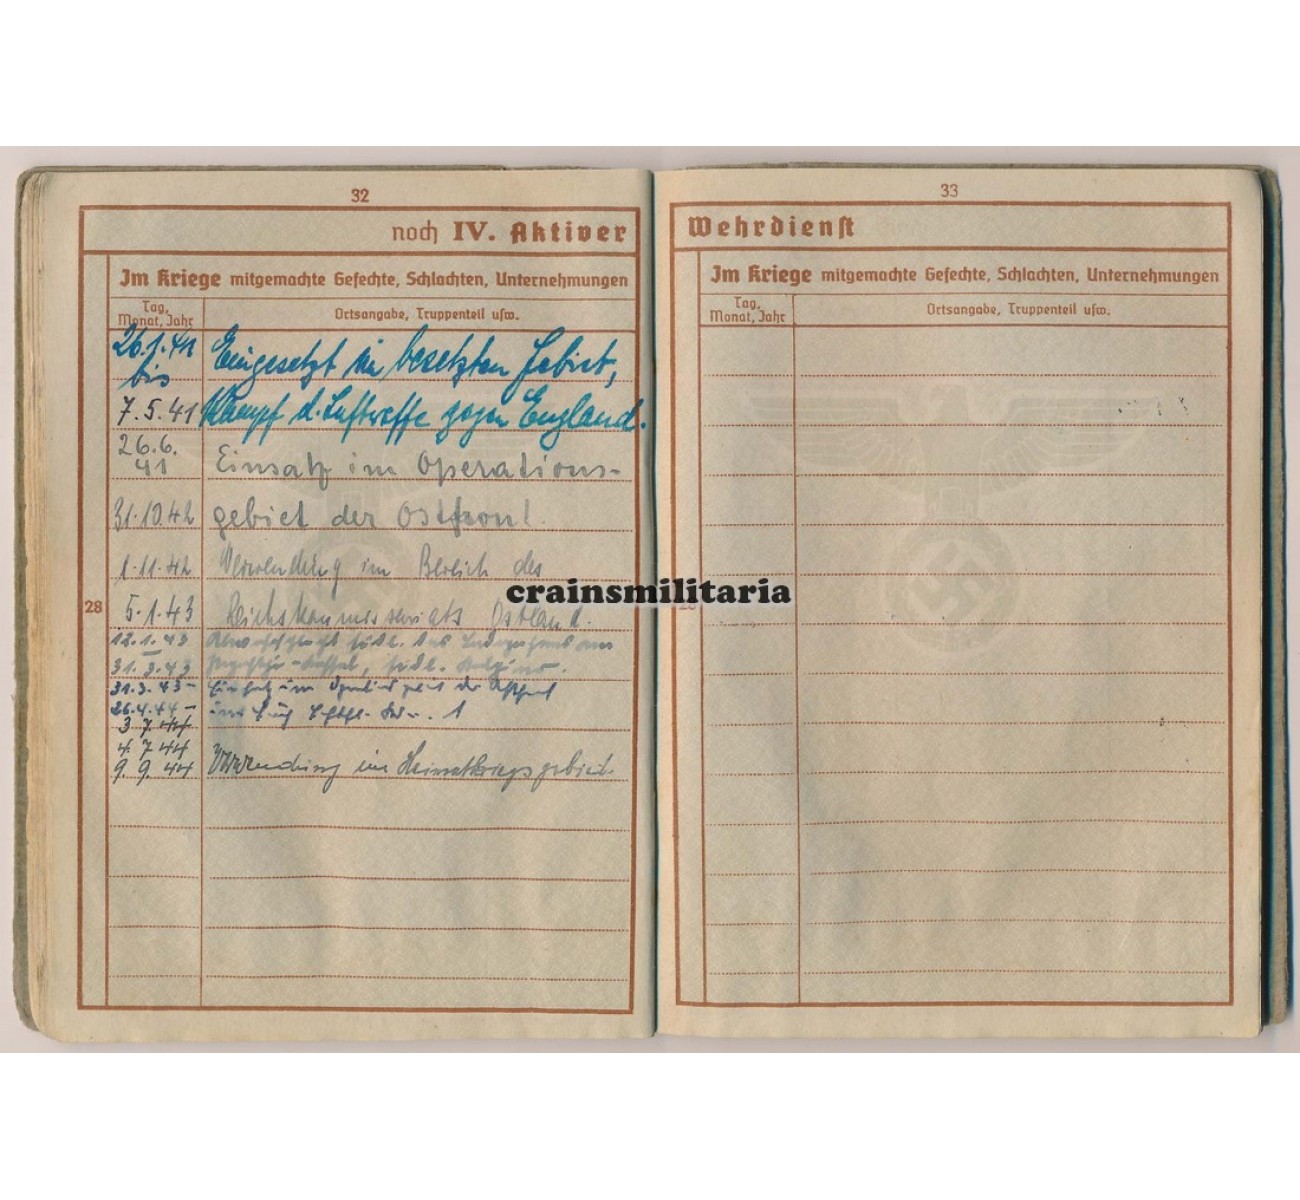 32
noch IV. Aktiver
Im Kriege mitgemachte Gefechte, Schlachten, Unternehmungen
Tag, Monat, Jahr
Ortsangabe, Truppenteil usw.
26.1.41 Eingesetzt im besetzten Gebiet,
bis
7.5.41 Kampf d. Luftwaffe gegen England.
26.6.41 Einsatz im Operations-
31.10.42 gebiet der Ostfront.
1.11.42 Verwendung im Bereich des
28
5.1.43 Reichskommissariats Ostland.
12.1.43 südl. des am
31.3.43 südl.
31.3.43 – Einsatz im der Ostfront
26.4.44 – 1
3 7.44
4. 7.44
9. 9. 44 Verwendung im Heimatkriegsgebiet.
33
Wehrdienst
Im Kriege mitgemachte Gefechte, Schlachten, Unternehmungen
Tag, Monat, Jahr
Ortsangabe, Truppenteil usw.
28
crainsmilitaria